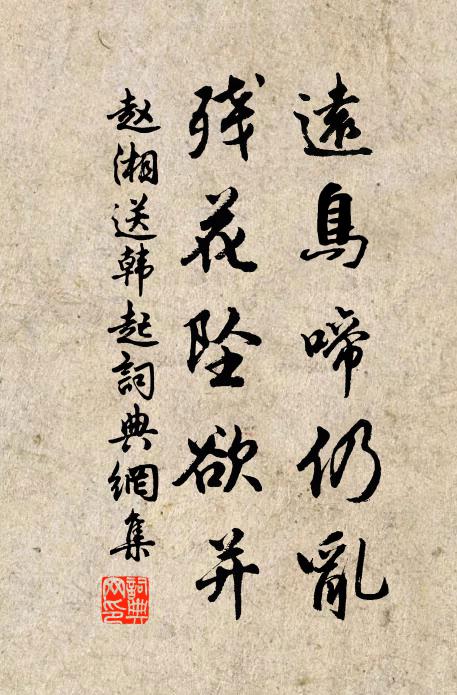 遠鳥啼仍亂
残花坠欲并
赵湘送韩起詞典網集
詞典网印